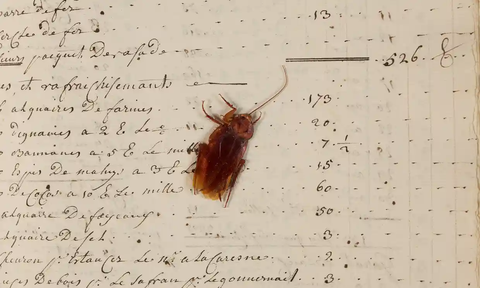 barre de fer 13
cercle de fer
paquet De rasade 526
es et rafraichisements
alquaires De farines 173
dignames a 2 E Le 20
bananes a 5 E le mille 7 1/2
De mahys a 3 E Le 15
De Cocos a 10 E Le mille 60
alquaire De fayeaux 50
alquaire De sel 3
pr Etancher Le a la Caresne 2
De bois pr Le Safran pr Le gouvernail 3